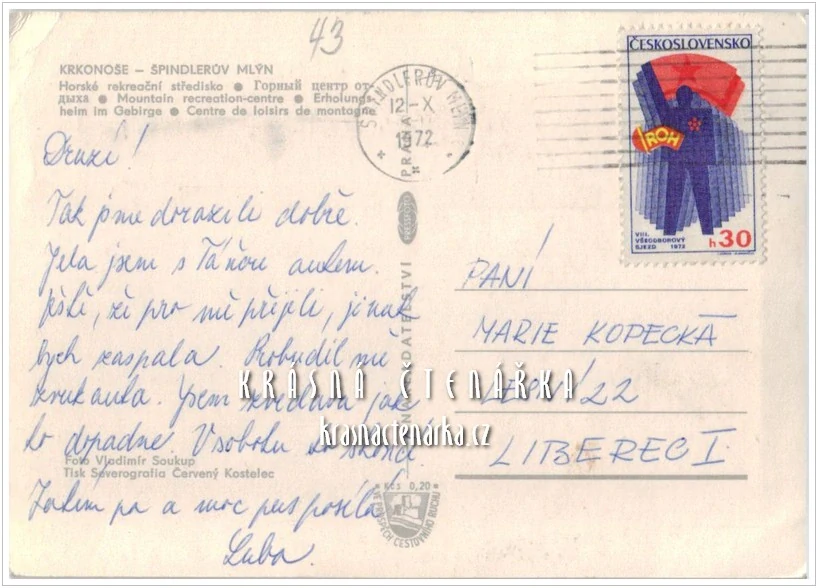 43
KRKONOŠE – ŠPINDLERŮV MLÝN
Horské rekreační středisko ● Горный центр от-
дыха ● Mountain recreation-centre ● Erholung-
heim im Gebirge ● Centre de loisirs de montagne
ŠPINDLERŮV MLÝN
12.-X
1972
ČESKOSLOVENSKO
ROH
VIII.
VŠEODBOROVÝ
SJEZD 1972
h 30
Drazí!
Tak jsme dorazili dobře.
Jela jsem s Táňou autem.
Ještě, že pro mě přijeli, jinak
bych zaspala. Probudil mě
zvuk auta. Jsem zvědava jak
to dopadne. V sobotu to skončí
Zatím pa a moc pus posílá
Luba.
PANÍ
MARIE KOPECKÁ
LESNÍ 22
LIBEREC I
KRÁSNÁ ČTENÁŘKA
krasnactenarka.cz
Foto Vladimír Soukup
Tisk Severografia Červený Kostelec
Kčs 0,20
VE PROSPĚCH CESTOVNÍHO RUCHU